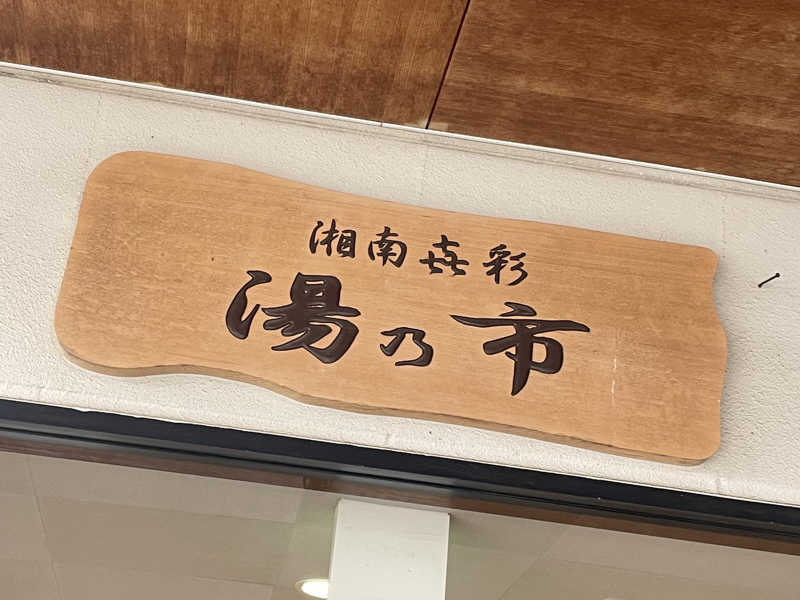 湘南㐂彩
湯乃市